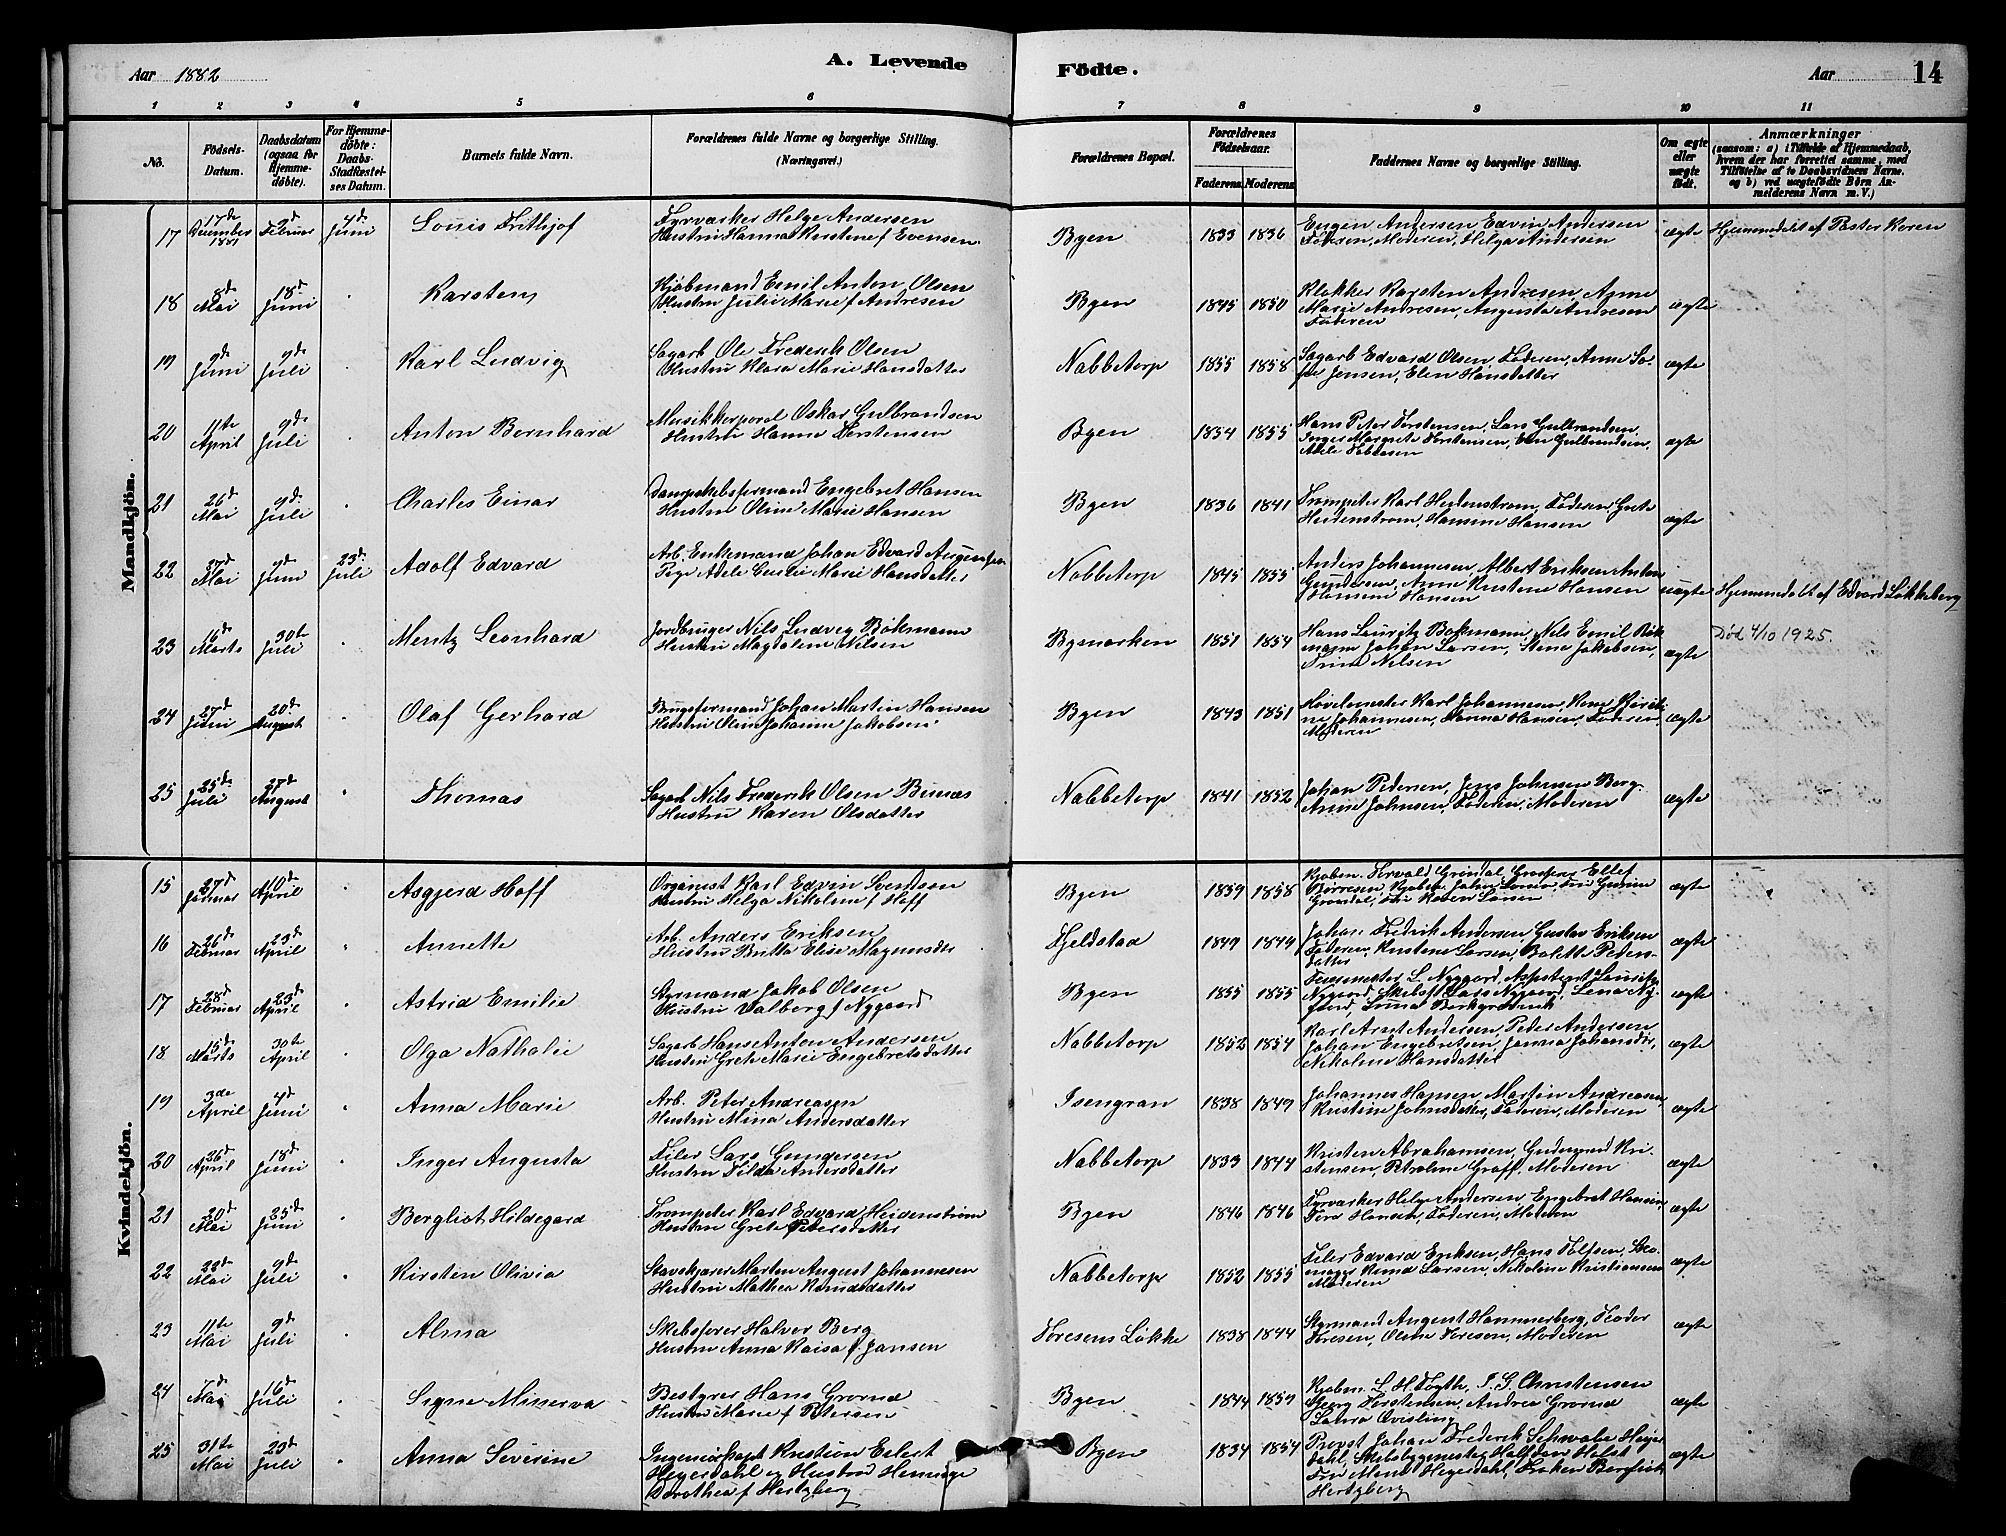 Aar 1882
A. Levende Födte.
Aar 14
1 2 3 4 5 6 7 8 9 10 11
No.
Födsels-Datum.
Daabsdatum (ogsaa for Hjemme-döbte).
For Hjemme-döbte: Daabs-Stadfæstel-ses Datum.
Barnets fulde Navn.
Forældrenes fulde Navne og borgerlige Stilling. (Næringsvei.)
Forældrenes Bopæl.
Forældrenes Födselsaar.
Faderens Moderens
Faddernes Navne og borgerlige Stilling.
Om ægte eller uægte födt.
Anmærkninger
(saasom: a) i Tilfælde af Hjemmedaab, hvem der har forrettet samme, med Tilföielse af to Daabsvidners Navne. og b) ved uægtefödte Börn An-melderens Navn m. V.)
Mandkjön.
17 17de December 1881 2d Februar 4d Juni Louis Frithjof Fyrvarker Helge Andersen Hustru Hanna Kirstine f Evensen Byen 1833 1836 Eugen Andersen Edvin Andersen Faderen, Moderen, Helga Andersen ægte Hjemmedøbt af Pastor Koren
18 8d Mai 18d Juni Karsten Kjøbmand Emil Anton Olsen Hustru Julie Marie f Andresen Byen 1845 1850 Klokker Karsten Andresen, Anne Marie Andresen, Augusta Andresen Faderen ægte
19 9d Juni 9d Juli Karl Ludvig Sagarb Ole Frederik Olsen Hustru Klara Marie Hansdatter Nabbetorp 1855 1858 Sagarb Edvard Olsen, Faderen, Anne So-fie Jensen, Elen Hansdatter ægte
20 11te April 9d Juli Anton Bernhard Musikkorporal Oskar Gulbrandsen Hustru Hanna Torstensen Byen 1854 1855 Hans Peter Torstensen, Lars Gulbrandsen, Inger Margrete Torstensen, Gulbrandsen, ægte
21 26d Mai 9d Juli Charles Einar Dampskibsformand Engebret Hansen Hustru Oline Marie Hansen Byen 1836 1841 Trompeter Karl Heidenstrøm, Faderen, Grete Heidenstrøm, Hansine Hansen ægte
22 27d Mai 9d Juni 23d Juli Adolf Edvard Arb. Enkemand Johan Edvard Pige Adele Marie Hansdatter Nabbetorp 1845 1855 Anders Johannesen, Albert Eriksen Anton Gundersen, Anne Kirstine Hansen Hansine Hansen uægte Hjemmedøbt af Edvard Løkkeberg
23 16d Marts 30te Juli Mentz Leonhard Jordbruger Nils Ludvig Bökmann Hustru Magdalene Nilsen Bymarken 1851 1854 Hans Lauritz Bökmann, Nils Emil Bök-mann Johan Larsen, Stene Jakobsen, Trine Nilsen ægte Död 4/10 1925.
24 27d Juni 20d August Olaf Gerhard Brugsformand Johan Martin Hansen Hustru Oline Johanne Jakobsen Byen 1843 1851 Høvlemester Karl Johannesen, Johannesen, Hanna Hansen, Faderen, Moderen ægte
25 25de Juli 27d August Thomas Sagarb Nils Frederik Olsen Hustru Karen Olsdatter Nabbetorp 1841 1852 Johan Pedersen, Jens Johnsen Berg Anne Johnsen, Faderen, Moderen ægte
Kvindekjön.
15 27d Januar 10d April Asgjerd Hoff Organist Karl Edvin Svendsen Hustru Helga Nikoline f Hoff Byen 1859 1858 Kjøbm. Torvald Grøndal, Ellef Børresen, Kjøbm. Johan Larsen, Fru Grøndal, Fru Karen Larsen ægte
16 26d Februar 23d April Annette Arb. Anders Eriksen Hustru Britta Elise Magnusdtr Gjeldstad 1849 1844 Johan Fredrik Andersen, Gustav Eriksen Faderen, Kirstene Larsen, Bolette Peders-datter ægte
17 28d Februar 23d April Astrid Emilie Styrmand Jakob Olsen Hustru Valborg f Nygaard Byen 1855 1855 L. Nygaard, Assistent Lauritz Nygaard, Skibsf Lars Nygaard, Lena Ny-gaard, ægte
18 15d Marts 30te April Olga Nathalie Sagarb Hans Anton Andersen Hustru Grete Marie Engebretsdatter Nabbetorp 1852 1854 Karl Arnt Andersen, Peder Andersen Johan Engebretsen, Janna Johansdtr, Nikoline Hansdatter ægte
19 3de April 4d Juni Anna Marie Arb. Peter Andreasen Hustru Mina Andersdatter Isengran 1838 1849 Johannes Hansen, Martin Andreasen, Kirstine Johnsdatter, Faderen, Moderen ægte
20 26d April 18d Juni Inger Augusta Filer Lars Gungersen Hustru Tilda Andersdatter Nabbetorp 1833 1844 Kristen Abrahamsen, Gudmund Kri-stensen, Petroline Graff, Moderen ægte
21 20d Mai 25de Juni Bergliot Hildegard Trompeter Karl Edvard Heidenstrøm Hustru Grete Petersdatter Byen 1846 1846 Fyrvarker Helge Andersen, Engebret Hansen, Hansen, Faderen, Moderen ægte
22 22d Mai 9d Juli Kirsten Olivia Stavskjærer Marten August Johannesen Hustru Mathea Knudsdatter Nabbetorp 1852 1855 Filer Edvard Eriksen, Hans Tolfsen, Sko-mager Knud Larsen, Nikoline Kristiansen Moderen ægte
23 11te Mai 9d Juli Alma Skibsfører Halvor Berg Hustru Anna Kaisa f. Jansen Foresens Løkke 1838 1844 Styrmand August Hammerberg, Teodor Foresen, Olava Foresen, Moderen ægte
24 7d Mai 16d Juli Signe Minerva Bestyrer Hans Grorud Hustru Marie f Petersen Byen 1844 1854 Kjøbm. L. H. Fogth, I. S. Christensen Georg Torstensen, Andrea Grorud Laura Qvisling ægte
25 31te Mai 23d Juli Anna Severine Ingeniørkapt Kristian Eilert Heyerdahl og Hustru Henninge Dorothea f Hertzberg Byen 1834 1854 Provst Johan Frederik Schwabe Heyer-dahl, Skibsbyggmester Halfdan Holst Fru Heyerdahl, Frøken Bergliot Hertzberg ægte